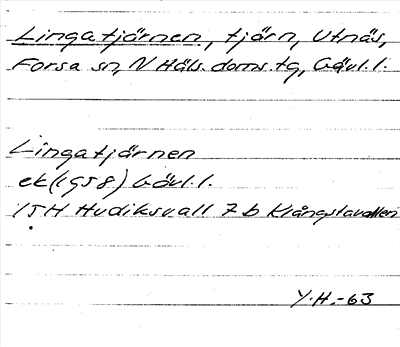 Lingatjärnen, tjärn, Utnäs,
Forsa sn, N Häls. doms. tg, Gävl. l.
Lingatjärnen
ek (1958) Gävl. l.
15H Hudiksvall 7 b Klångstavallen
Y.H.-63